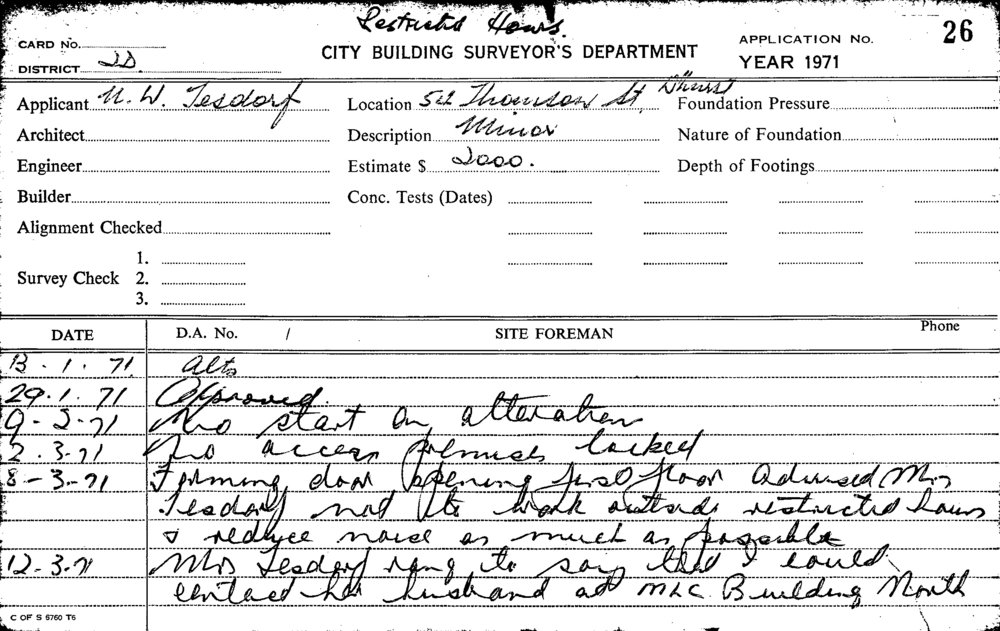 Restricted Hours.
CARD No.
CITY BUILDING SURVEYOR'S DEPARTMENT
APPLICATION No. 26
DISTRICT 2D.
YEAR 1971
Applicant N. W. Tesdorf
Location 52 Thomson St, D'hurst
Foundation Pressure
Architect
Description Minor
Nature of Foundation
Engineer
Estimate $ 2000.
Depth of Footings
Builder
Conc. Tests (Dates)
Alignment Checked
1.
Survey Check 2.
3.
DATE D.A. No. / SITE FOREMAN Phone
13.1.71 Alts
29.1.71 Approved.
9-2-71 No start on alteration
2.3.71 No access premises locked
8-3-71 Forming door opening first floor Advised Mrs
Tesdorf not to work outside restricted hours
& reduce noise as much as possible
12-3-71 Mrs Tesdorf rang to say that I could
contact her husband at MLC Building North
C OF S 6760 T6